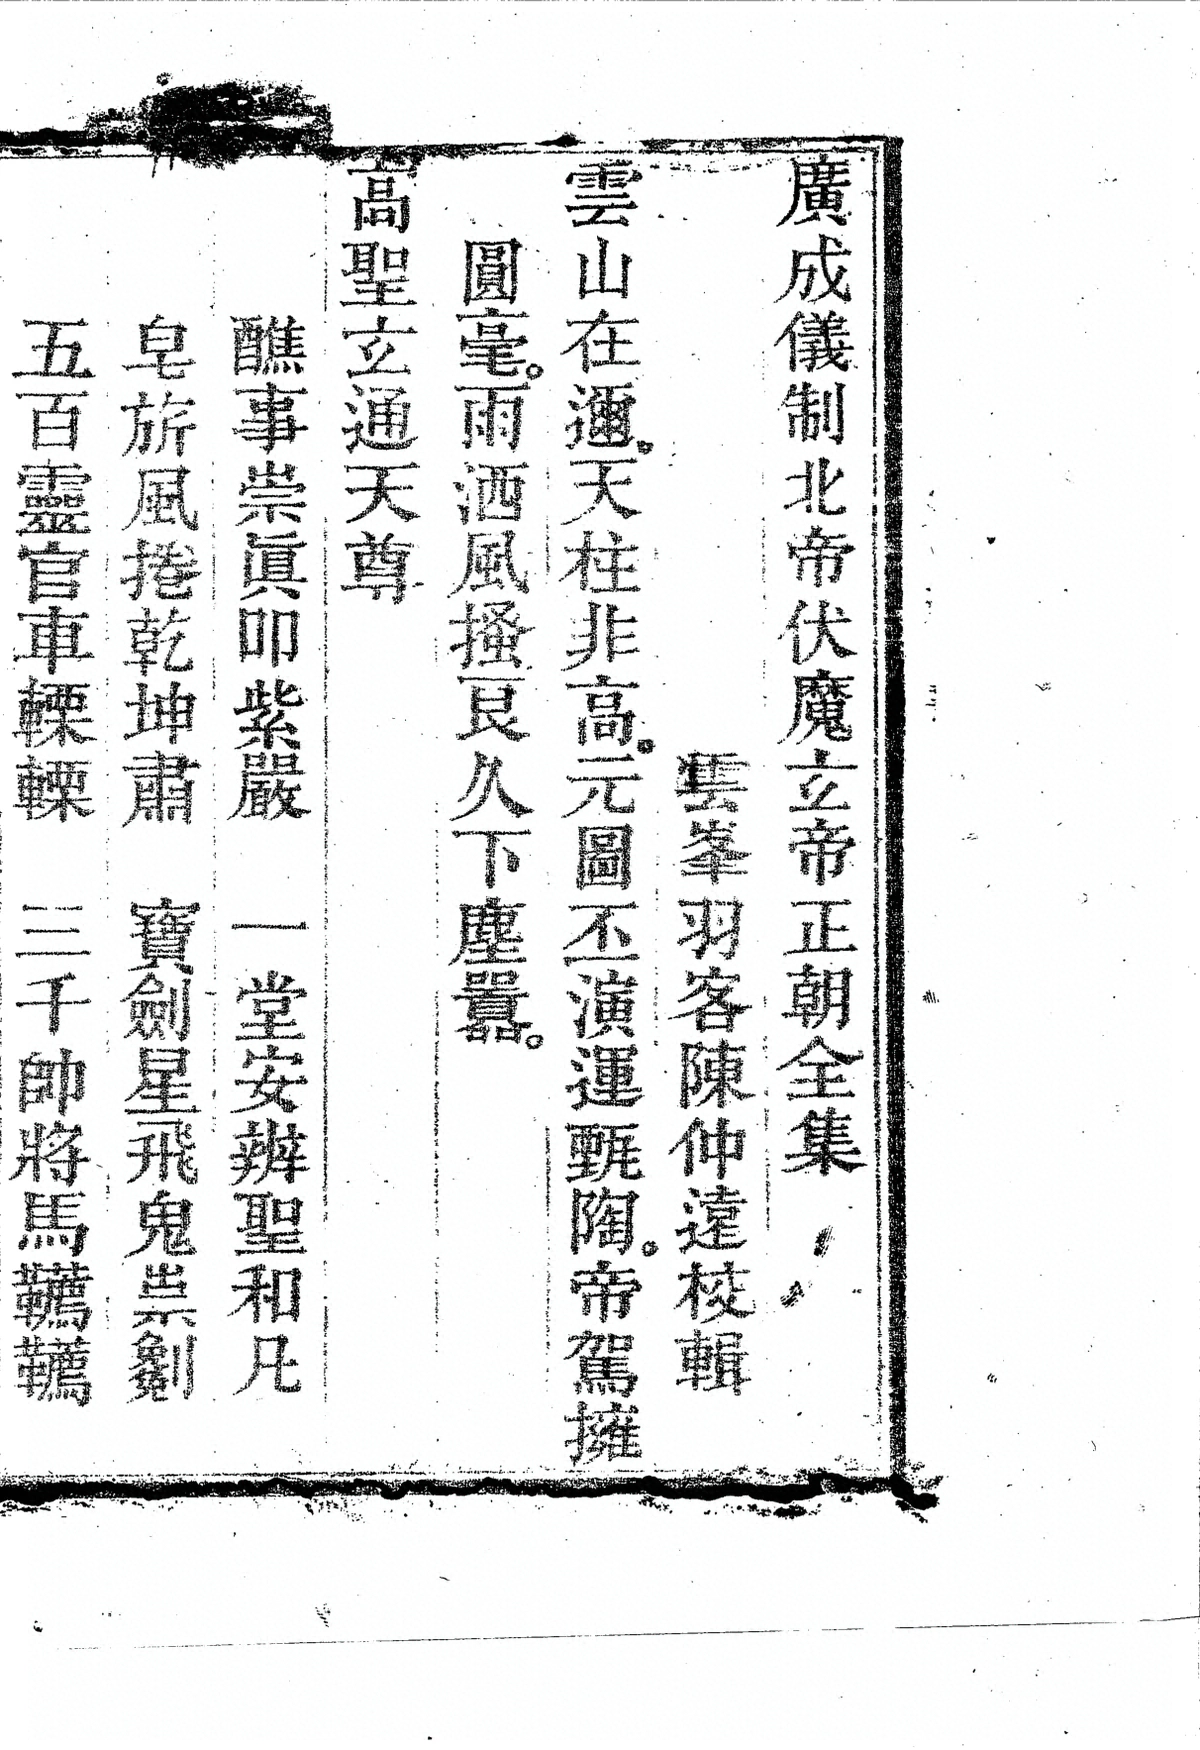 廣成儀制北帝伏魔立帝正朝全集
雲峯羽客陳仲遠校輯
雲山在邇。天柱非高。元圖丕演運甄陶。帝駕擁
圓毫。雨洒風搔良久下塵囂。
高聖立通天尊
醮事崇眞叩紫嚴　一堂安辦聖和凡
皂旂風捲乾坤肅　寶劍星飛鬼祟劖
五百靈官車轣轣　三千帥將馬韉韉